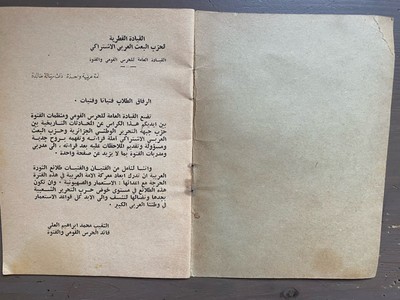 القيادة القطرية
لحزب البعث العربي الاشتراكي
القيادة العامة للحرس القومي والفتوة
أمة عربية واحدة ذات رسالة خالدة
الرفاق الطلاب فتيانا وفتيات ٠
تضع القيادة العامة للحرس القومي ومنظمات الفتوة
بين ايديكم هذا الكراس عن المحادثات التاريخية بين
حزب جبهة التحرير الوطني الجزائرية وحزب البعث
العربي الاشتراكي آملة قراءته وتفهمه بروح جدية
ومسؤولة وتقديم الملاحظات عليه بعد قراءته ، الى مدربي
ومدربات الفتوة بما لا يزيد عن صفحة واحدة ٠
واننا لنأمل من الفتيان والفتيات طلائع الثورة
العربية ان تدرك ابعاد معركة الامة العربية في هذه الفترة
الحرجة مع اعدائها : الاستعمار والصهيونية ٠ وان تكون
هذه الطلائع في مستوى خوض حرب التحرير الشعبية
بعدها ونضالها لتنسف والى الابد كل قواعد الاستعمار
في وطننا العربي الكبير ٠
النقيب محمد ابراهيم العلي
قائد الحرس القومي والفتوة